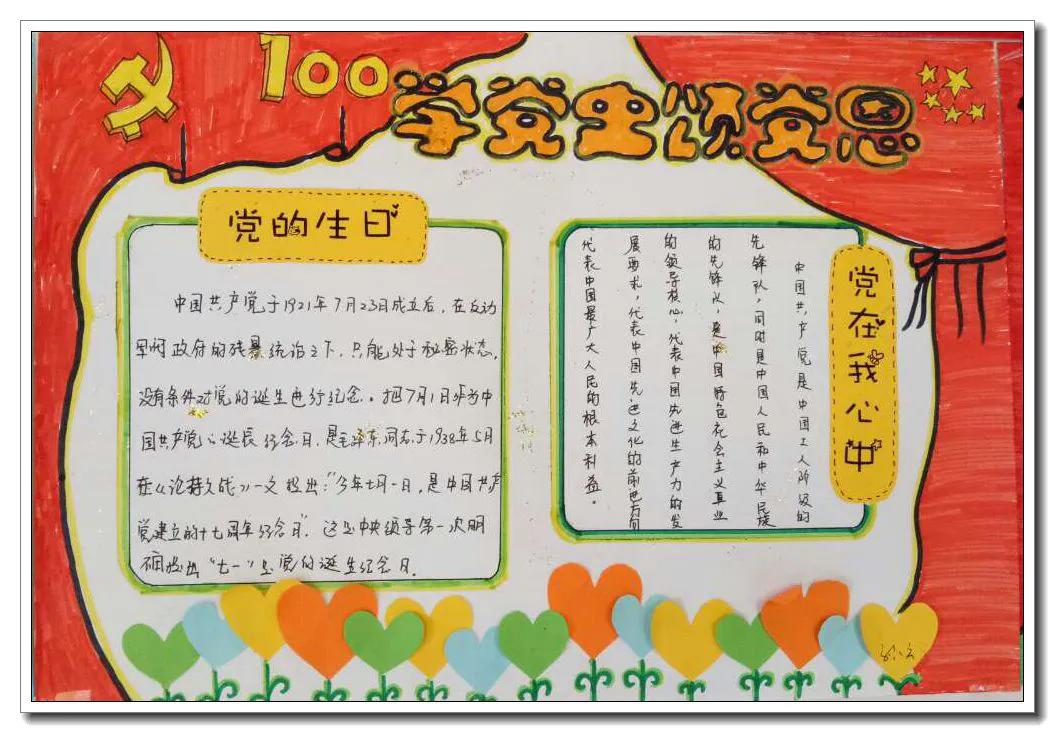 100
学党史颂党恩
党的生日
中国共产党于1921年7月23日成立后，在反动
军阀政府的残暴统治之下，只能处于秘密状态，
没有条件对党的诞生进行纪念。把7月1日作为中
国共产党的诞辰纪念日，是毛泽东同志于1938年5月
在《论持久战》一文提出："今年七月一日，是中国共产
党建立的十七周年纪念日"，这是中央领导第一次明
确指出"七一"是党的诞生纪念日.
党在我心中
中国共产党是中国工人阶级的
先锋队，同时是中国人民和中华民族
的先锋队，是中国特色社会主义事业
的领导核心，代表中国先进生产力的发
展要求，代表中国先进文化的前进方向
代表中国最广大人民的根本利益。